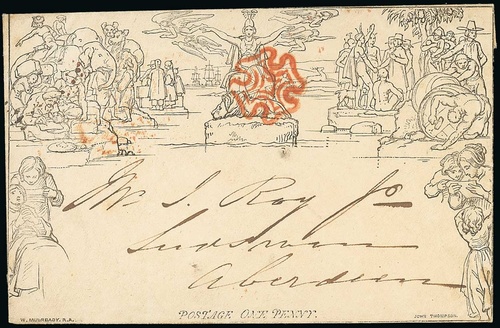 Mr. J. Roy Jr
Aberdeen
W. MULREADY, R.A.
POSTAGE ONE PENNY.
JOHN THOMPSON